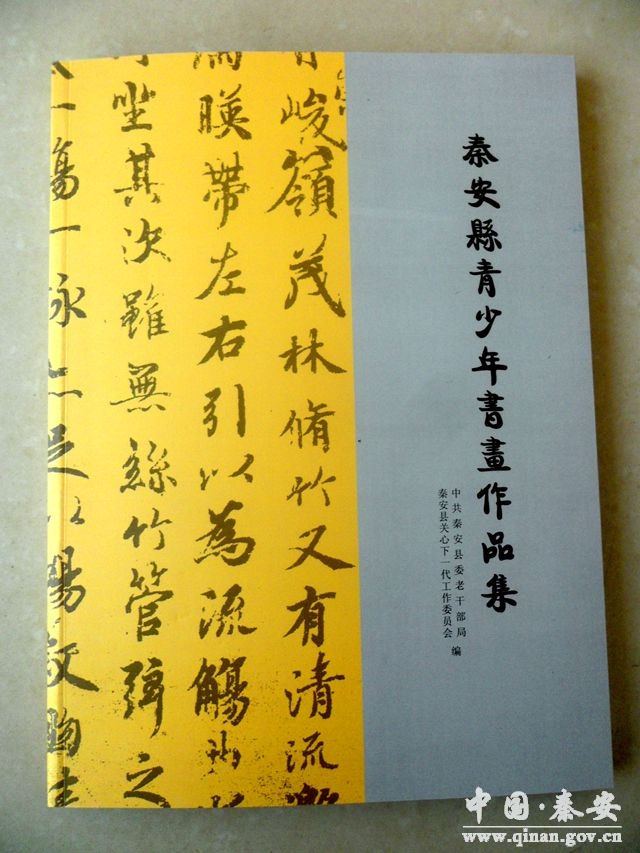 秦安縣青少年書畫作品集
中共秦安县委老干部局
秦安县关心下一代工作委员会 编
峻嶺茂林脩竹又有清流激
湍暎帶左右引以為流觴曲
坐其次雖無絲竹管弦之
一觴一詠亦足以暢敘幽
中国·秦安
www.qinan.gov.cn